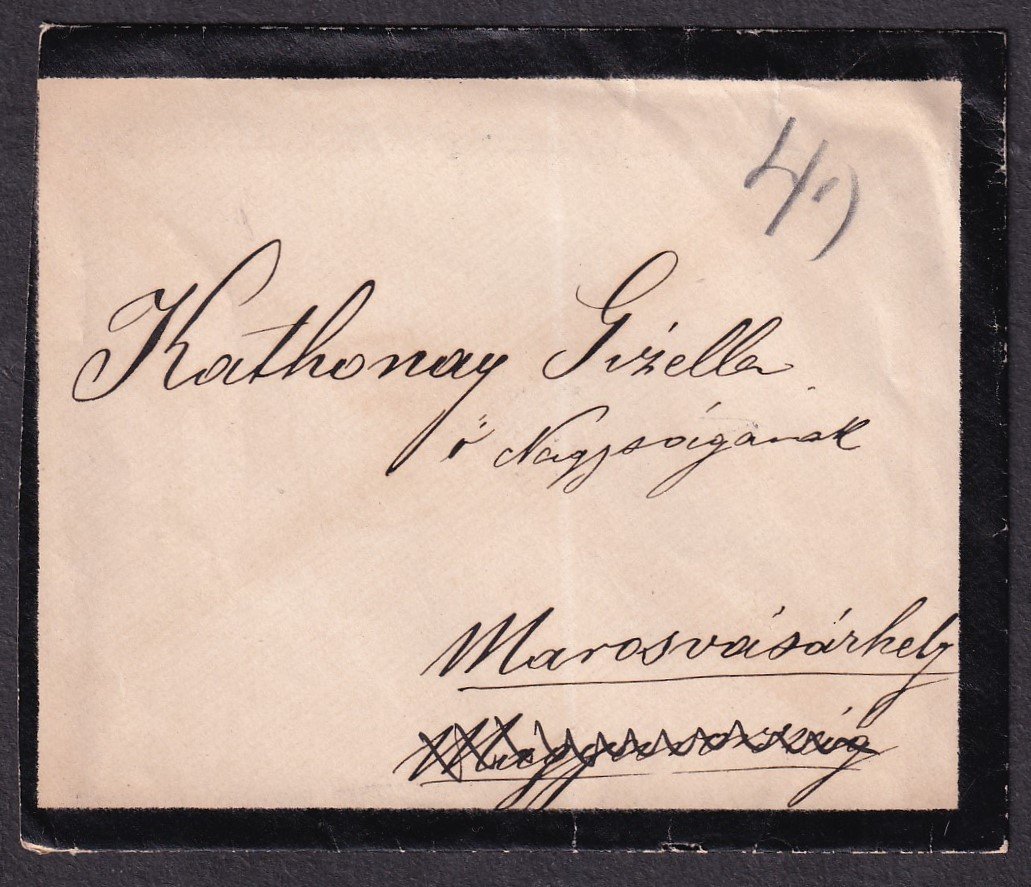 Kathonay Gizella
ő Nagyságának
Marosvásárhely
Magyarország